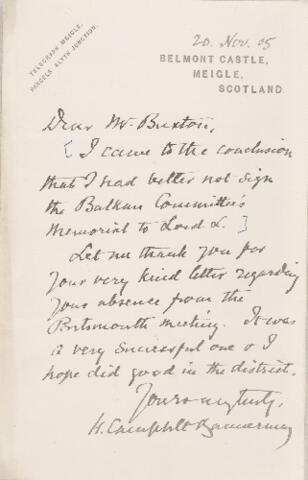 TELEGRAPH MEIGLE.
PARCELS ALYTH JUNCTION.
20. Nov. 05
BELMONT CASTLE,
MEIGLE,
SCOTLAND.
Dear Mr Buxton,
[ I came to the conclusion
that I had better not sign
the Balkan Committee's
Memorial to Lord L. ]
Let me thank you for
your very kind letter regarding
your absence from the
Portsmouth meeting. It was
a very successful one & I
hope did good in the district.
Yours very truly,
H. Campbell Bannerman